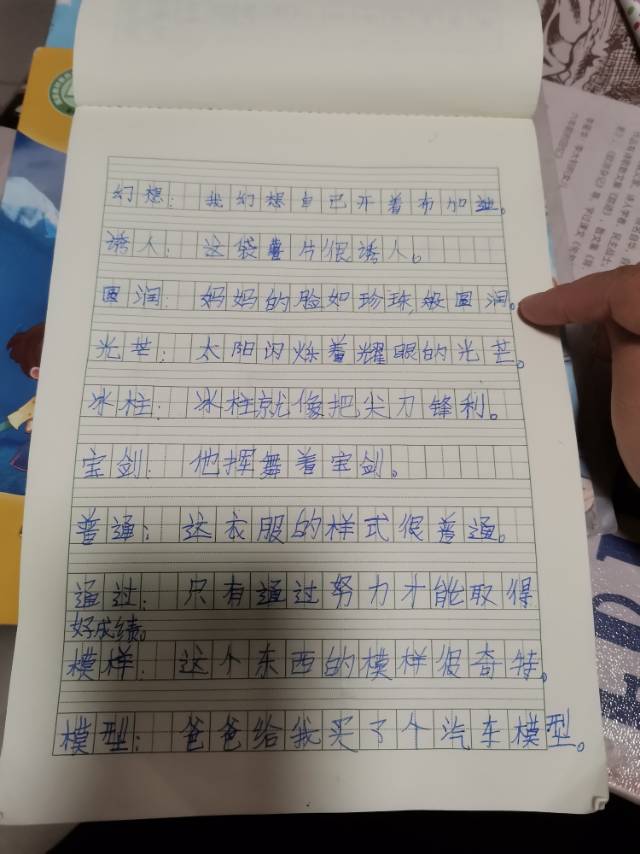 幻想：我幻想自己开着布加迪。
诱人：这袋薯片很诱人。
圆润：妈妈的脸如珍珠般圆润。
光芒：太阳闪烁着耀眼的光芒。
冰柱：冰柱就像把尖刀锋利。
宝剑：他挥舞着宝剑。
普通：这衣服的样式很普通。
通过：只有通过努力才能取得
好成绩。
模样：这个东西的模样很奇特。
模型：爸爸给我买了个汽车模型。